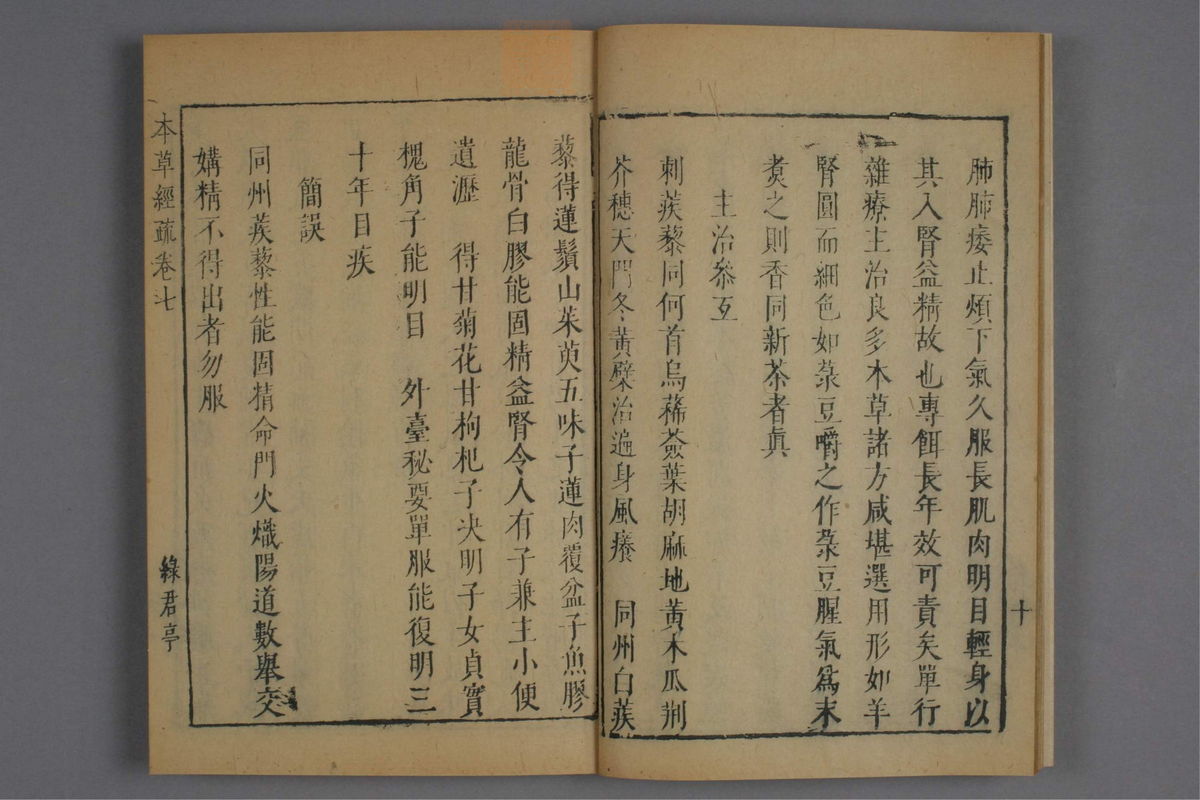 肺肺痿止煩下氣久服長肌肉明目輕身以
其入腎益精故也專餌長年效可責矣單行
雜療主治良多本草諸方咸堪選用形如羊
腎圓而細色如菉豆嚼之作菉豆腥氣爲末
煑之則香同新茶者眞
主治參互
刺蒺藜同何首烏豨薟葉胡麻地黃木瓜荆
芥穗天門冬黃檗治遍身風癢　同州白蒺
十
藜得蓮鬚山茱萸五味子蓮肉覆盆子魚膠
龍骨白膠能固精益腎令人有子兼主小便
遺瀝　得甘菊花甘枸杞子决明子女貞實
槐角子能明目　外臺秘要單服能復明三
十年目疾
簡誤
同州蒺藜性能固精命門火熾陽道數舉交
媾精不得出者勿服
本草經疏卷七
綠君亭